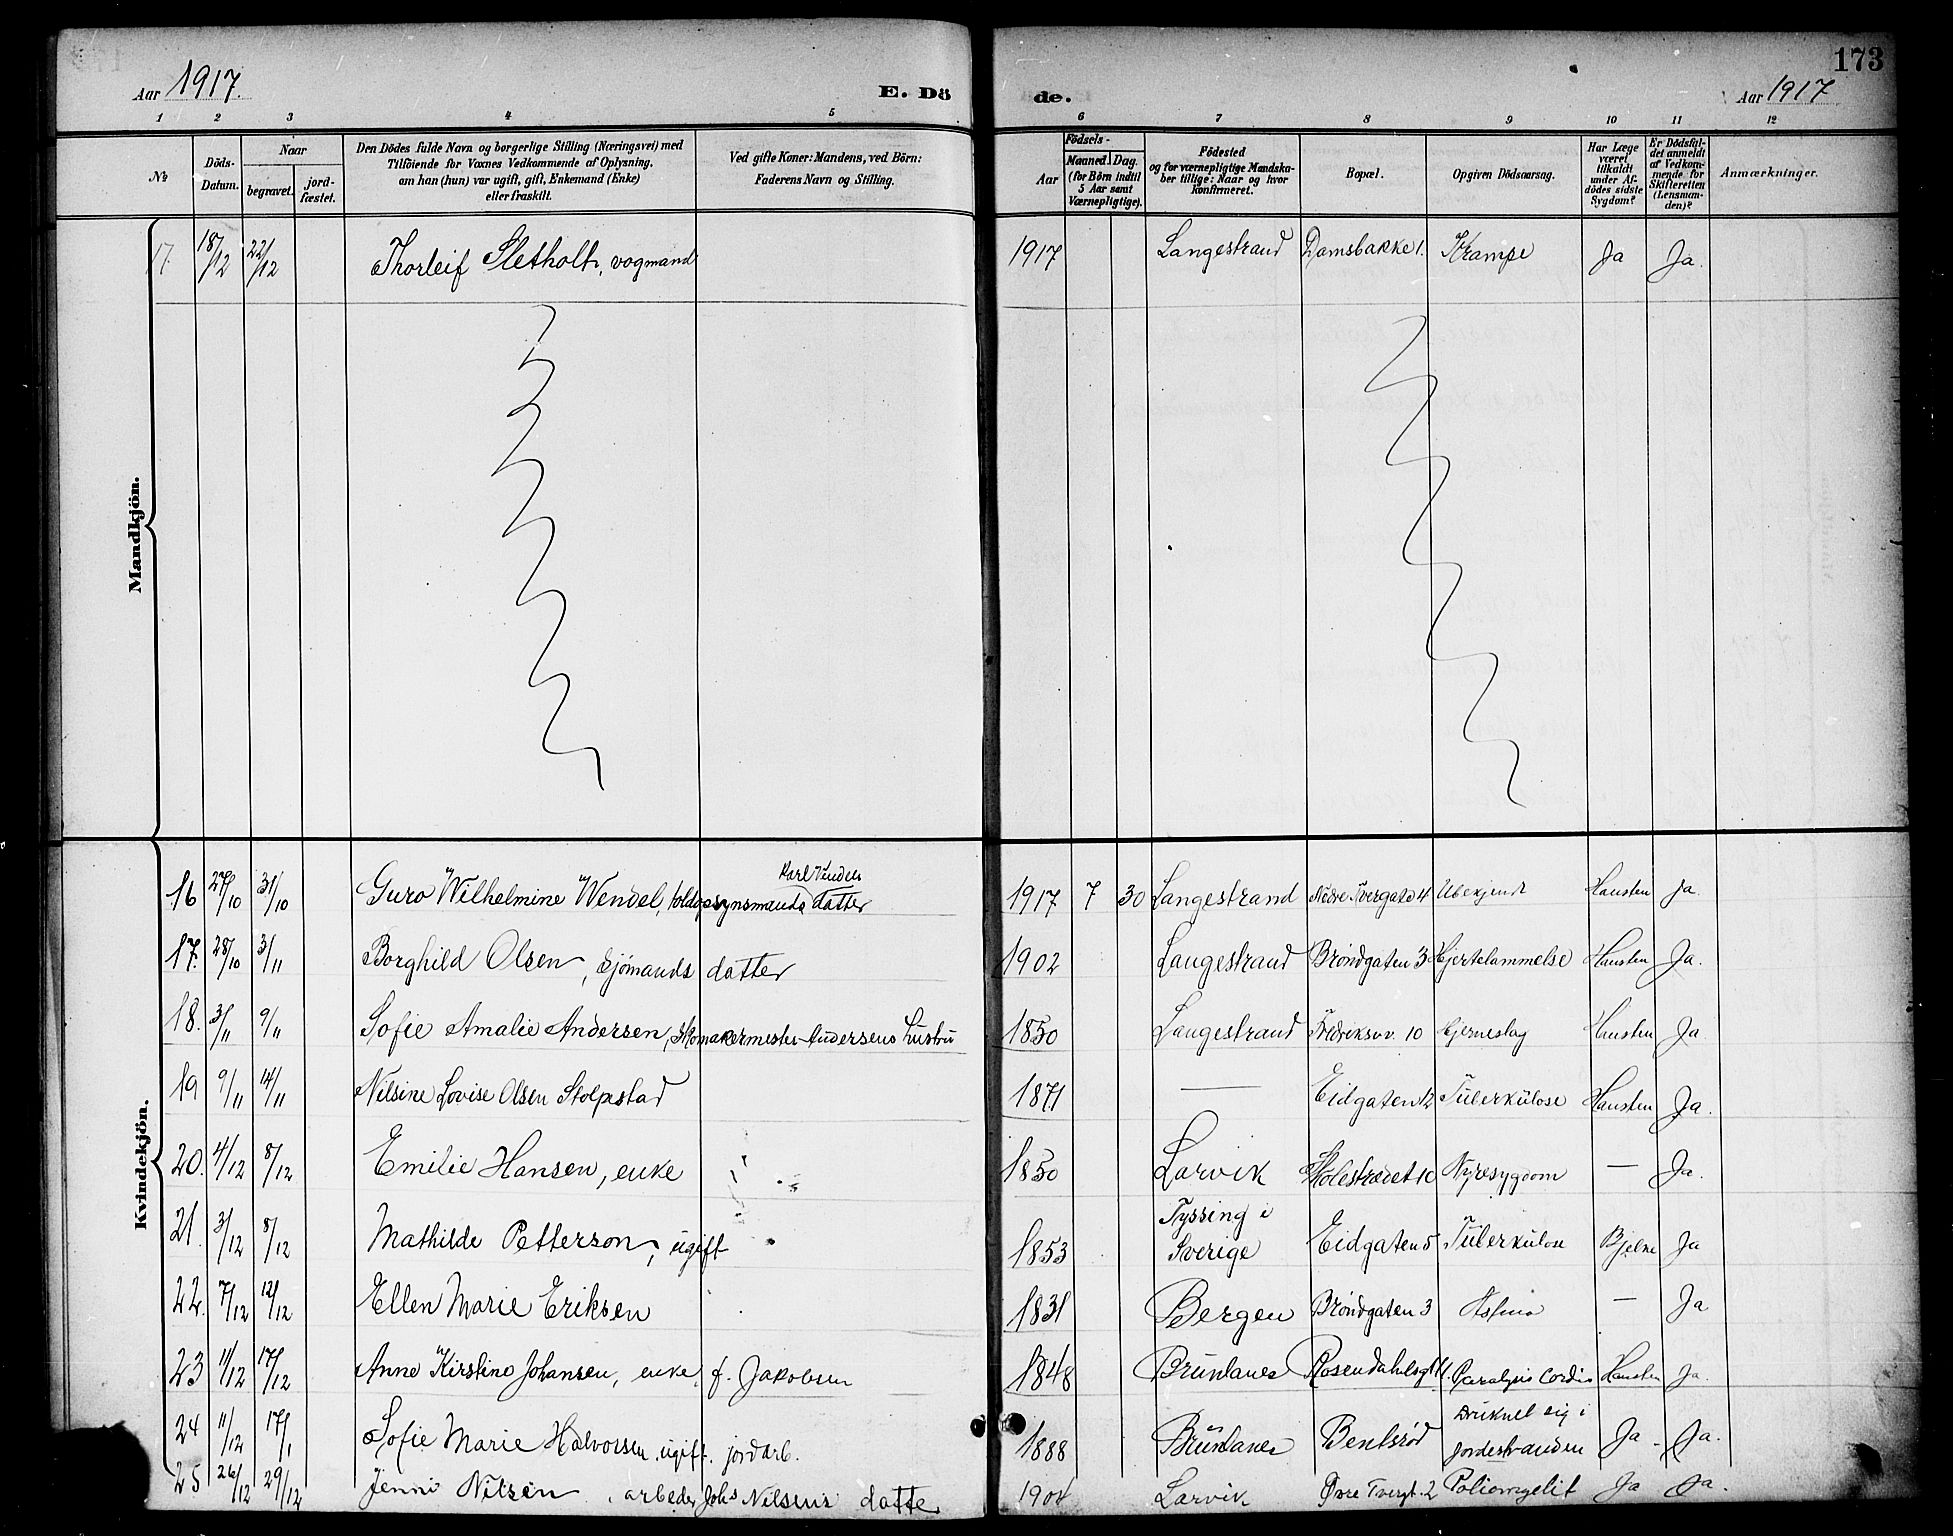 173
Aar 1917. E. Dö de. Aar 1917
1 2 3 4 5 6 7 8 9 10 11 12
№
Döds-Datum.
Naar
begravet.
jord-fæstet.
Den Dödes fulde Navn og borgerlige Stilling (Næringsvei) med
Tilföiende for Voxnes Vedkommende af Oplysning,
om han (hun) var ugift, gift, Enkemand (Enke)
eller fraskilt.
Ved gifte Koner: Mandens, ved Börn:
Faderens Navn og Stilling.
Födsels-
Aar
Maaned. Dag.
(for Börn indtil
5 Aar samt
Værnepligtige).
Födested
og for værnepligtige Mandska-
ber tillige: Naar og hvor
konfirmeret.
Bopæl.
Opgiven Dödsaarsag.
Har Læge
været
tilkaldt
under Af-
dödes sidste
Sygdom?
Er Dödsfal-
det anmeldt
af Vedkom-
mende for
Skifteretten
(Lensman-
den)?
Anmærkninger.
Mandkjön.
17. 18/12 22/12 Thorleif Sletholt, vogmand 1917 Langestrand Damsbakke 1. Krampe Ja Ja.
Kvindekjön.
16 27/10 31/10 Guro Wilhelmine Wendel, toldopsynsmands datter 1917 7 30 Langestrand Nedre Tvergate 4 Ubekjendt Hausten Ja.
17. 28/10 3/11 Borghild Olsen, sjömands datter 1902 Langestrand Bröndgaten 3 Hjertelammelse Hausten Ja.
18. 3/11 9/11 Sofie Amalie Andersen, skomakermester Andersens hustru 1850 Langestrand Fredriksv. 10 Hjerneslag Hausten Ja
19 9/11 14/11 Nilsine Lovise Olsen Stolpestad 1871 — Eidgaten 12 Tuberkulose Hausten Ja.
20. 4/12 8/12 Emilie Hansen, enke 1850 Larvik Holestrædet 10 Nyresygdom — Ja.
21. 3/12 8/12 Mathilde Petterson, ugift 1853 Tyssing i Sverige Eidgaten 5 Tuberkulose Bjelke Ja
22. 7/12 12/12 Ellen Marie Eriksen 1831 Bergen Bröndgaten 3 Astma — Ja
23 11/12 17/12 Anne Kirstine Johansen, enke, f. Jakobsen 1848 Brunlanes Rosendahlsgt. Paralysis Cordis Hausten Ja.
24 11/12 17/1 Sofie Marie Halvorsen, ugift. jordarb. 1888 Brunlanes Bentsröd Druknet sig i Jordestranden Ja. Ja.
25 26/12 29/12 Jenni Nilsen, arbeder Johs Nilsens datter 1904 Larvik Övre Tvergt. 2 Poliomyelit Ja Ja.